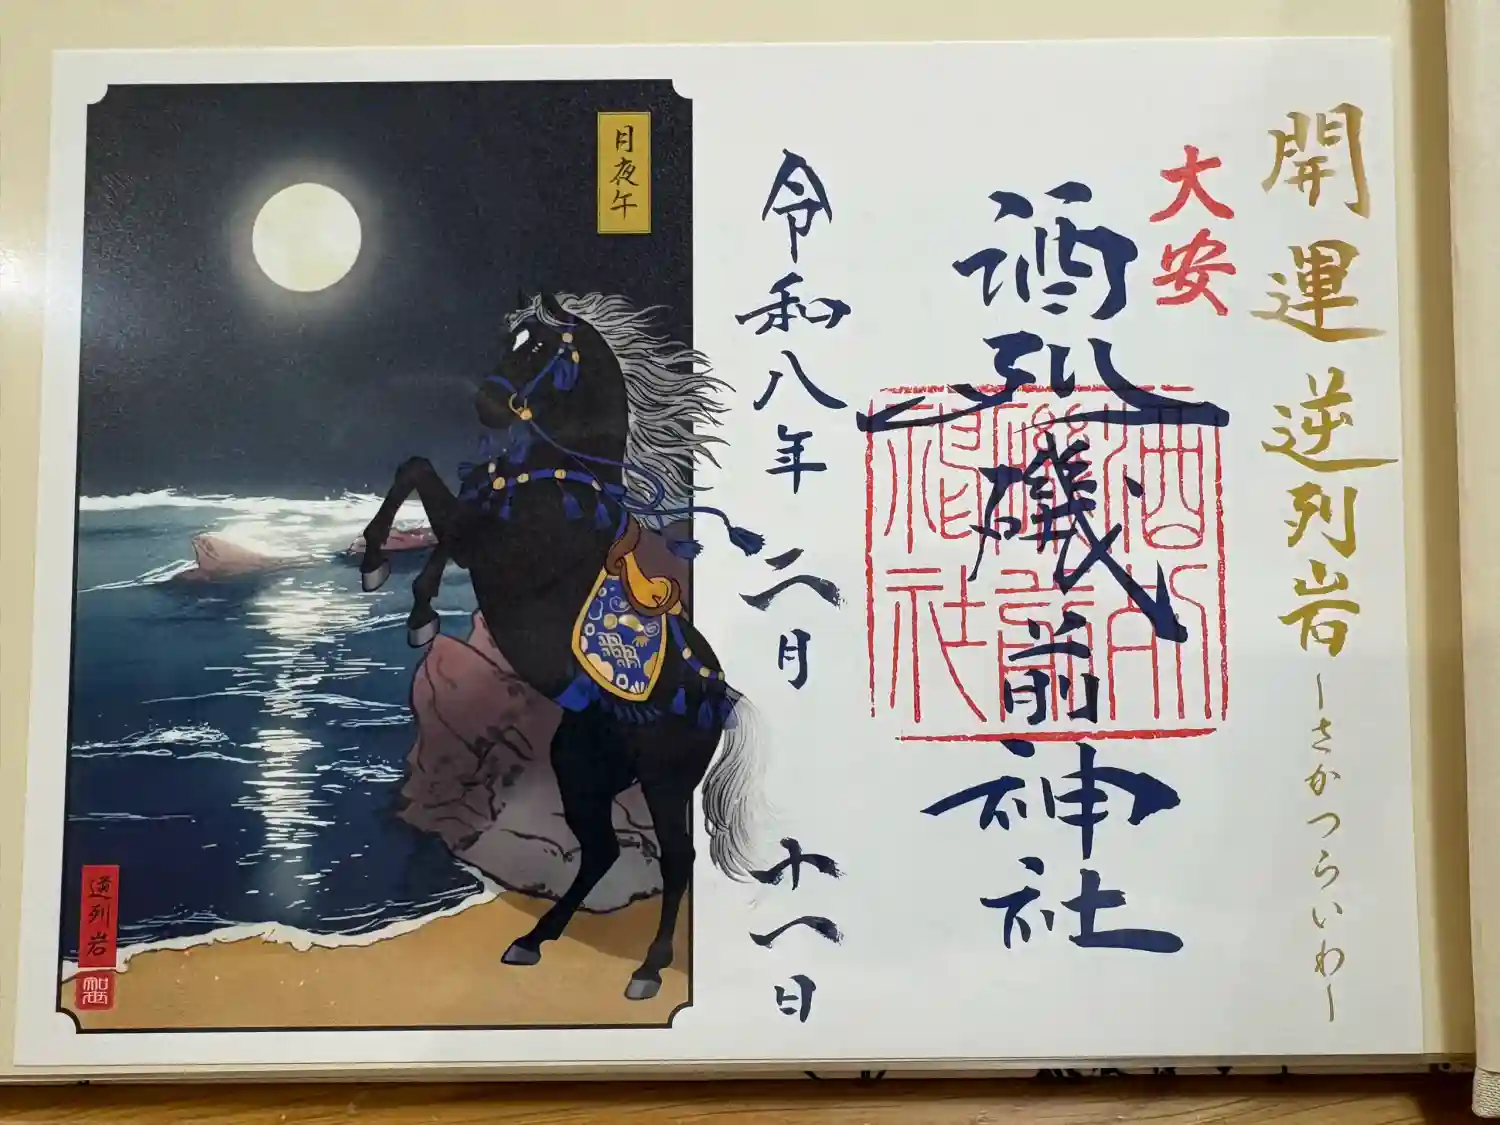 開運逆列岩
ーさかつらいわー
大安
酒列磯前神社
酒列
磯前
神社
令和八年二月十一日
月夜午
逆列岩